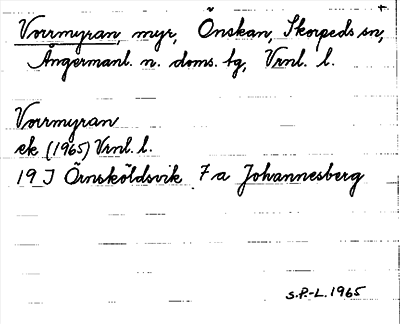 Vorrmyran, myr, Önskan, Skorpeds sn,
Ångermanl. n. doms. tg, Vrnl. l.
Vorrmyran
ek (1965) Vrnl. l.
19 J Örnsköldsvik 7 a Johannesberg
S.P.-L. 1965